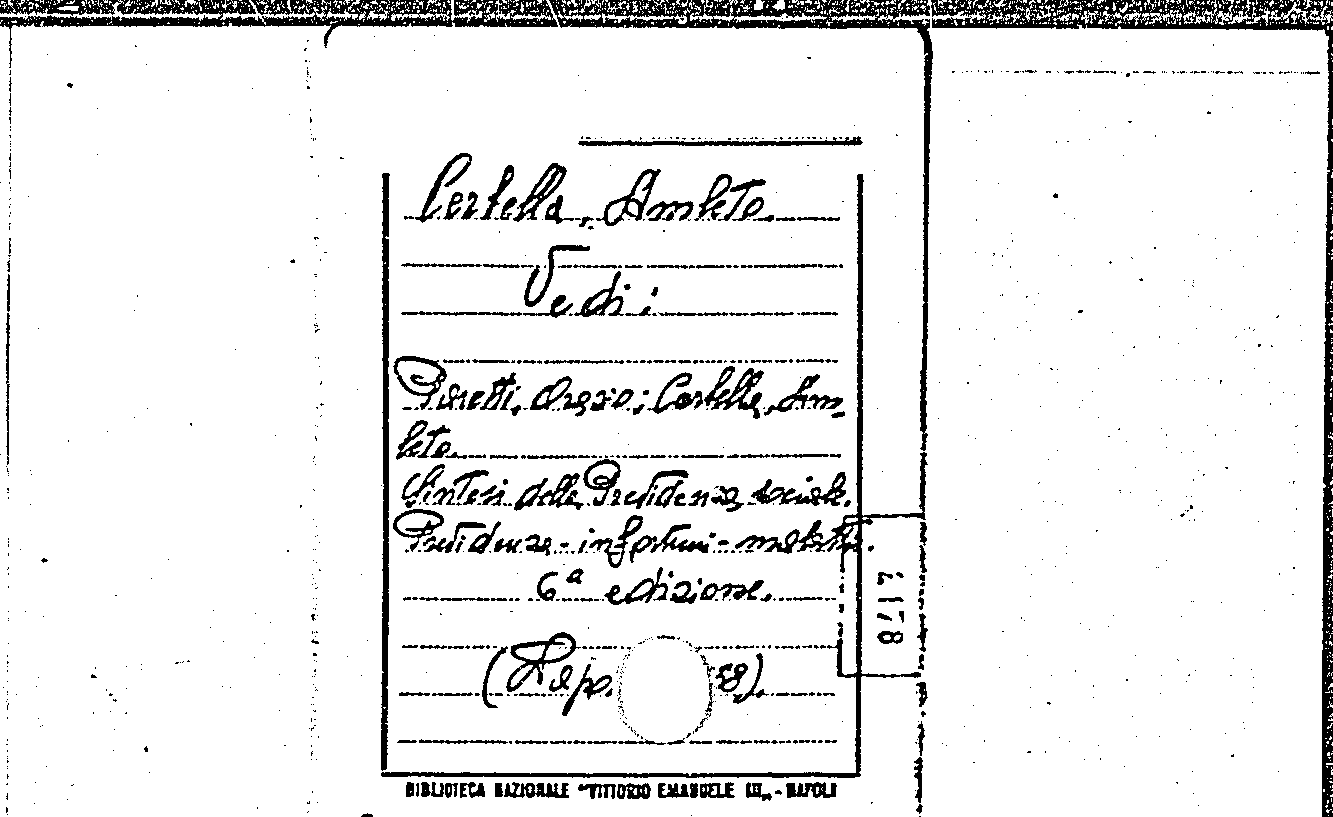 Certella, Amleto.
Vedi:
Piretti, Orazio; Certella, Am-
leto.
Sintesi della Previdenza sociale.
Previdenza - infortuni - malattia.
6ª edizione.
(Dep. 58).
7178
BIBLIOTECA NAZIONALE "VITTORIO EMANUELE III„ - NAPOLI